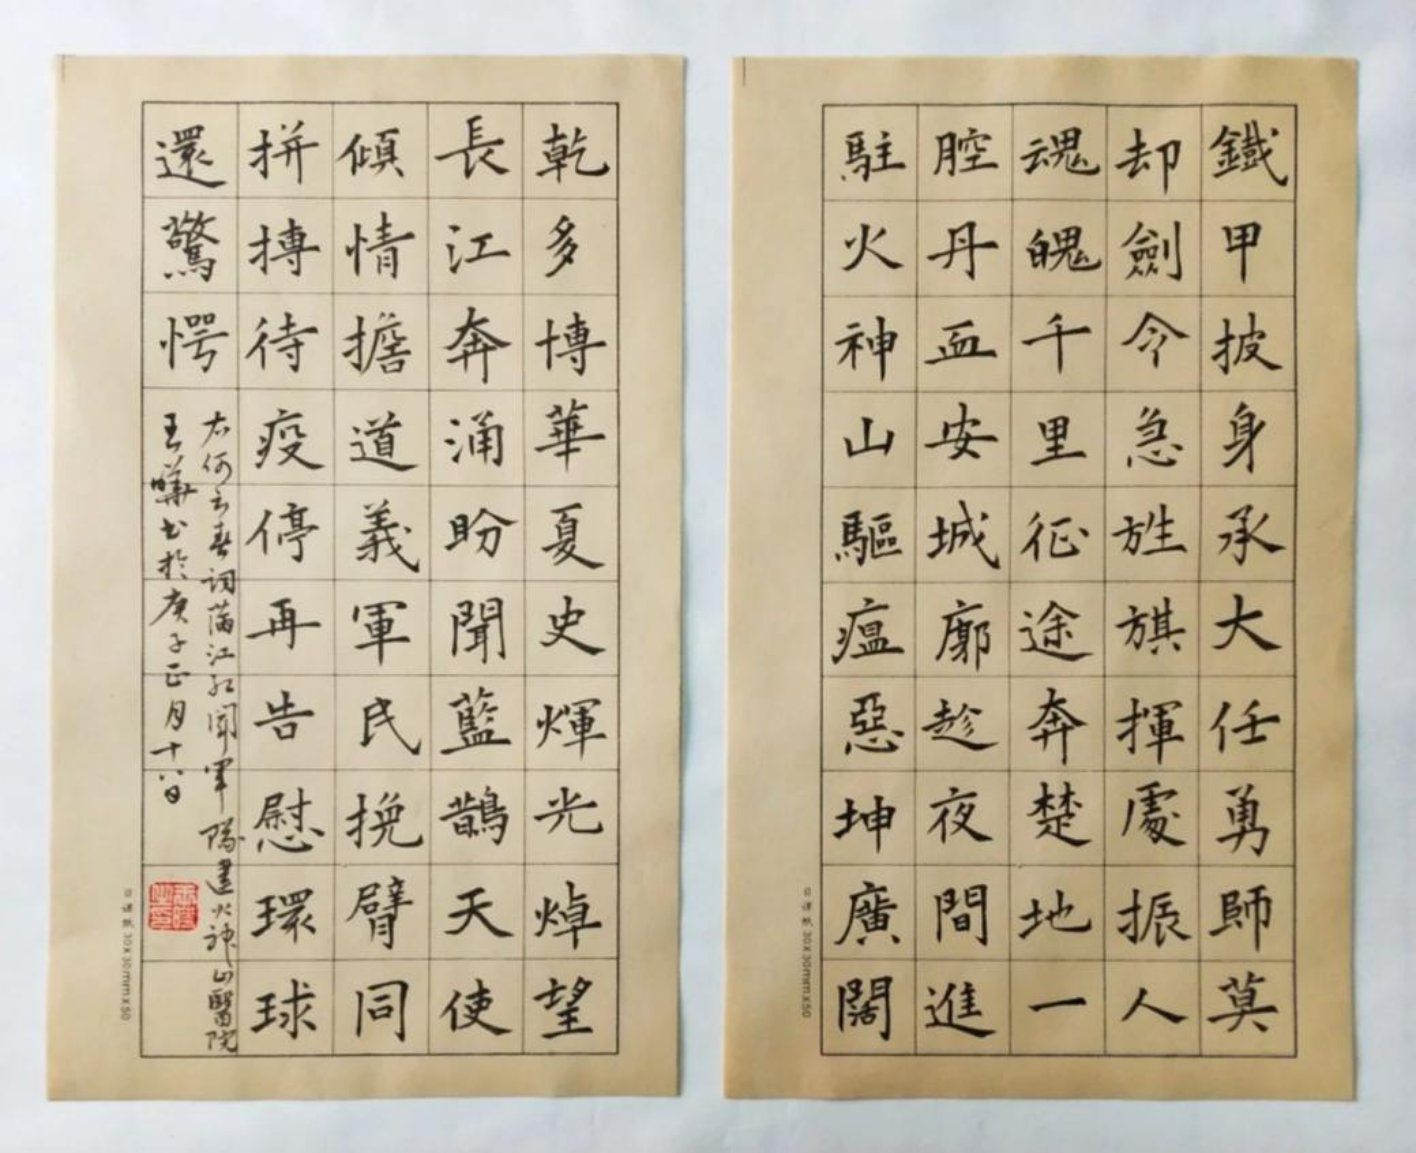 鐵甲披身承大任勇師莫
却劍令急旌旗揮處振人
魂魄千里征途奔楚地一
腔丹血安城廓趁夜間進
駐火神山驅瘟惡坤廣闊
日课纸 30x30mmx50
乾多博華夏史煇光焯望
長江奔涌盼聞藍鵲天使
傾情擔道義軍民挽臂同
拼搏待疫停再告慰環球
還驚愕
右何云春词满江红闻军隊建火神山醫院
王曄书於庚子正月十八日
日课纸 30x30mmx50